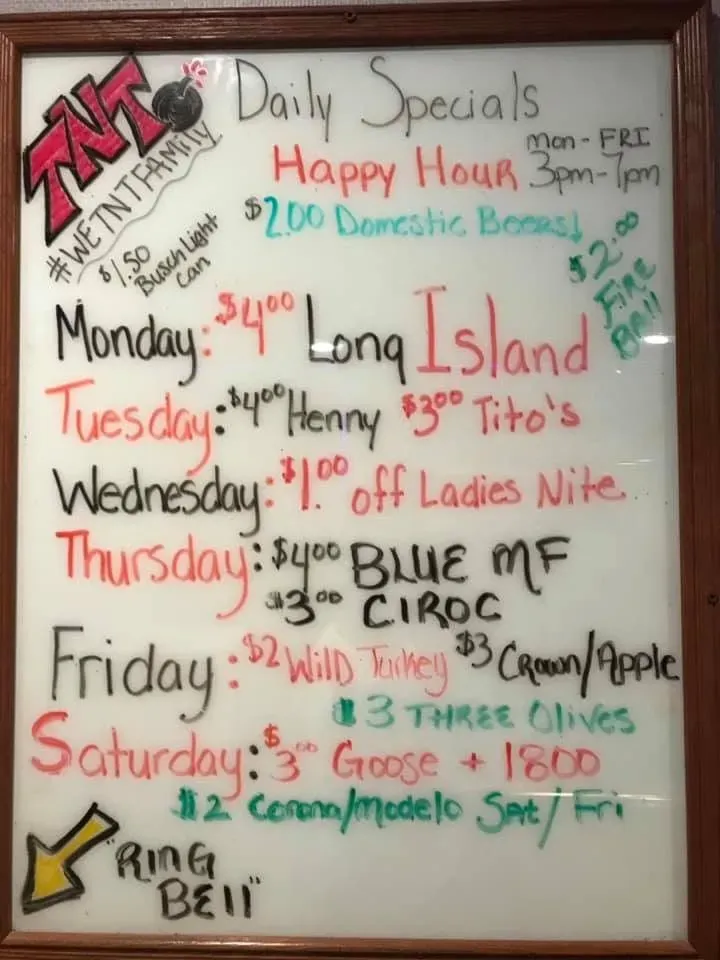 TNT
#WETNTFAMily
Daily Specials
mon-FRI
Happy Hour 3pm-7pm
$2.00 Domestic Beers!
$1.50
Busch Light
can
$2.00
FIRE
BAll
Monday: $4.00 Long Island
Tuesday: $4.00 Henny $3.00 Tito's
Wednesday: $1.00 off Ladies Nite
Thursday: $4.00 BLUE MF
$3.00 CIROC
Friday: $2 Wild Turkey $3 Crown/Apple
$3 THREE Olives
Saturday: $3.00 Goose + 1800
$2 Corona/modelo Sat/Fri
"RING
BEll"